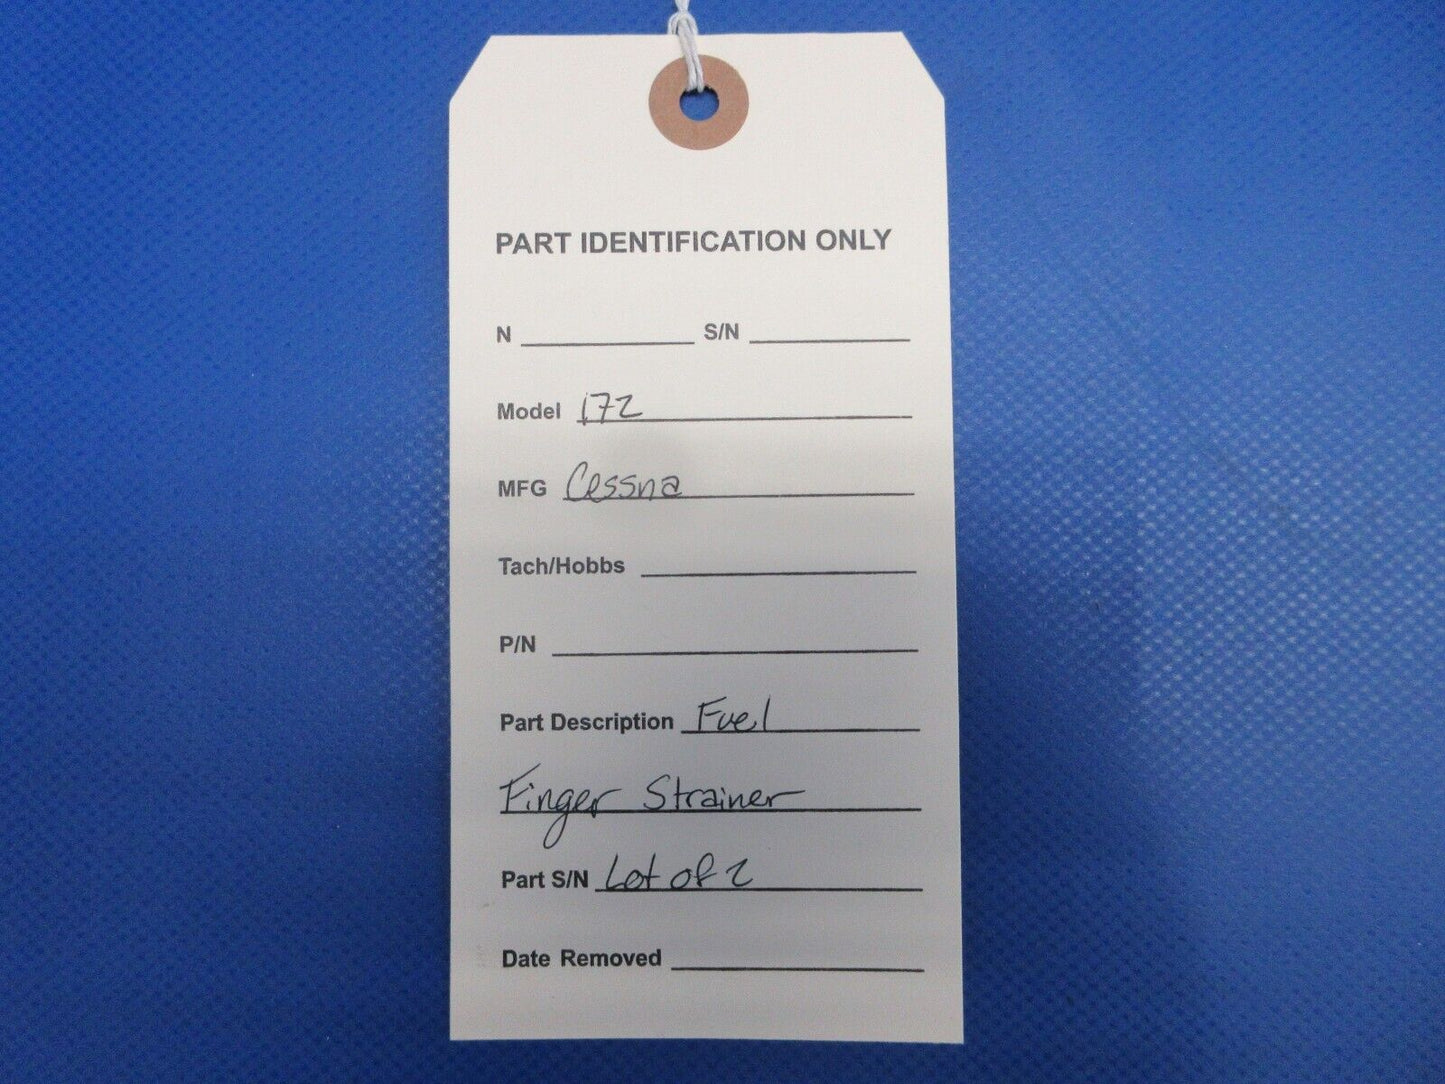 PART IDENTIFICATION ONLY
N S/N
Model 172
MFG Cessna
Tach/Hobbs
P/N
Part Description Fuel
Finger Strainer
Part S/N Lot of 2
Date Removed